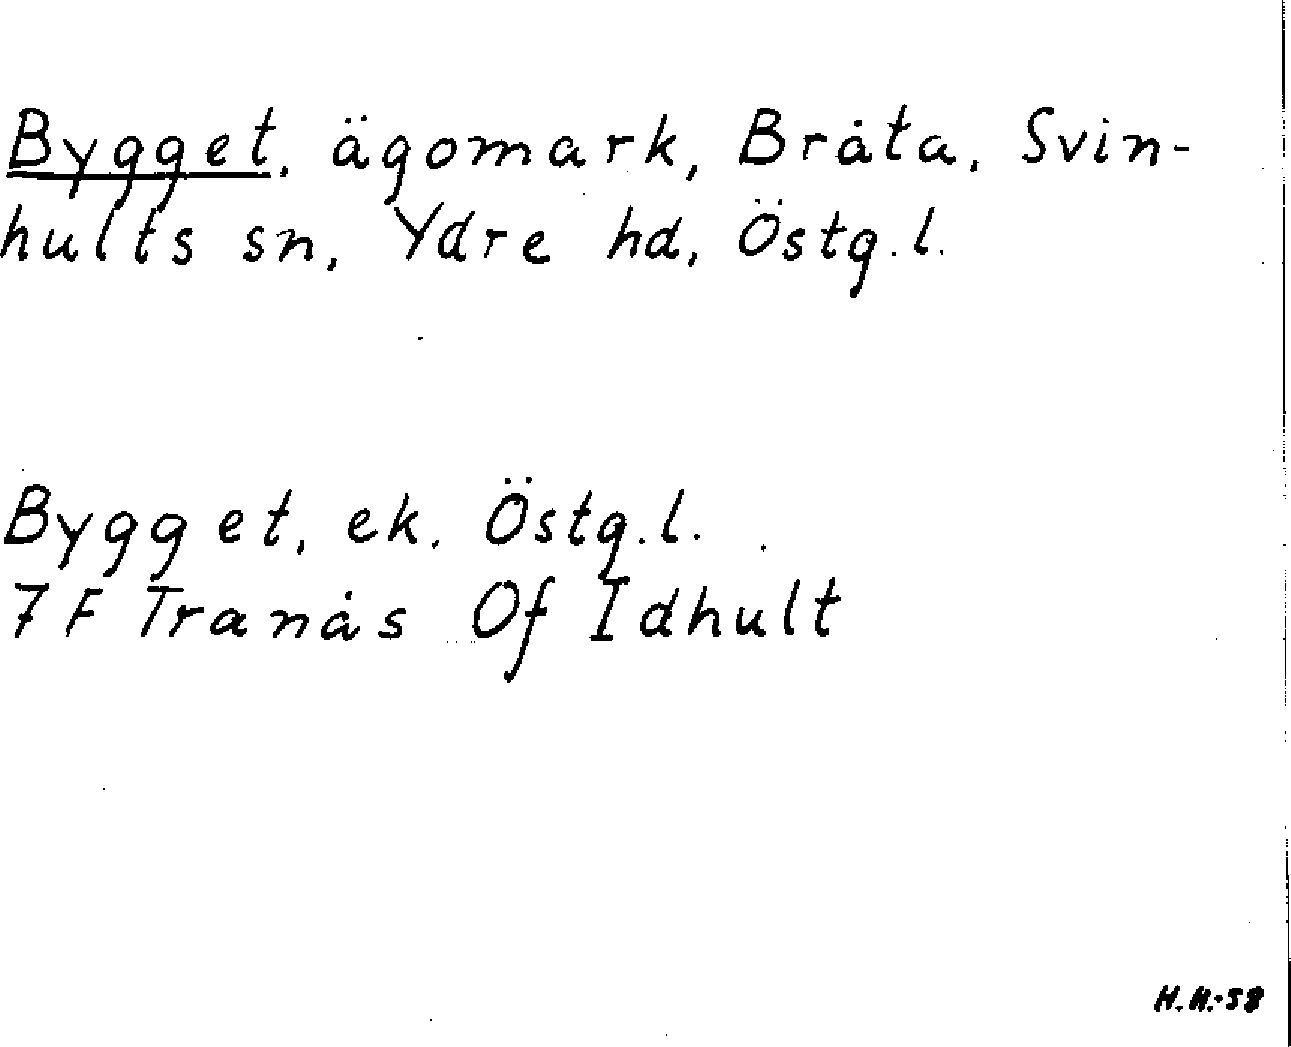 Bygget, ägomark, Bråta, Svin-
hults sn, Ydre hd, Östg.l.
Bygget, ek, Östg.l.
7F Tranås Of Idhult
H.H.-58